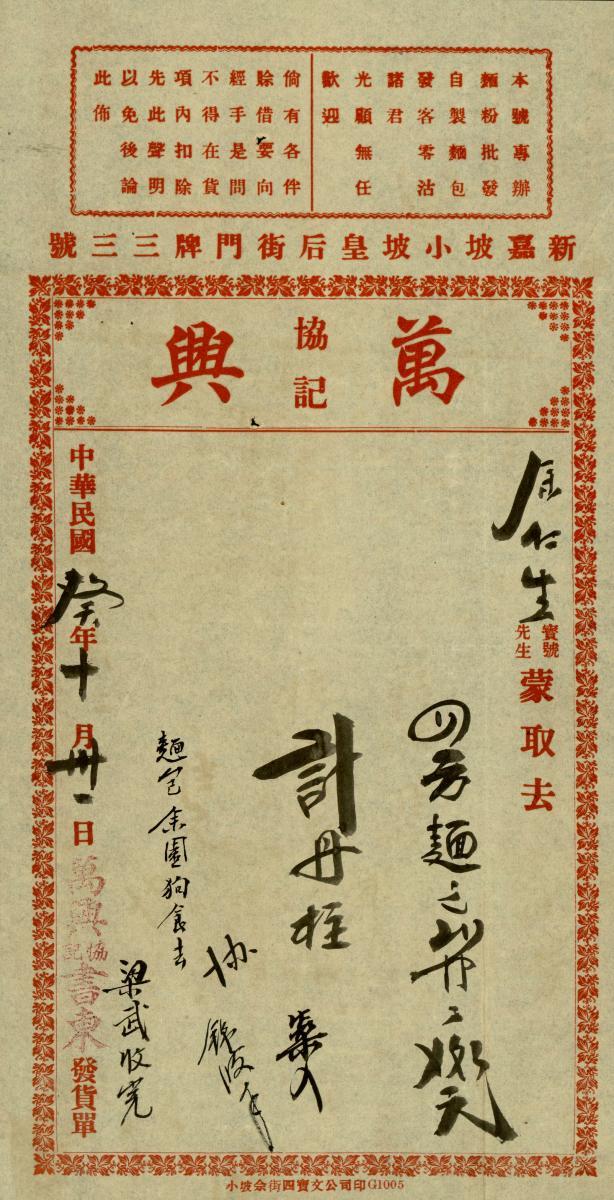 本號專辦
麵粉批發
自製麵包
發客零沽
諸君
光顧無任
歡迎
倘有各伴
賒借要向
經手是問
不得在貨
項內扣除
先此聲明
以免後論
此佈
新嘉坡小坡皇后街門牌三三號
萬興
協記
余仁生寶號先生蒙取去
四方麵包
計丹柱
麵包余園狗食去
梁武收完
中華民國癸年十月卅一日
萬興協記書柬
發貨單
小坡佘街四寶文公司印G1005